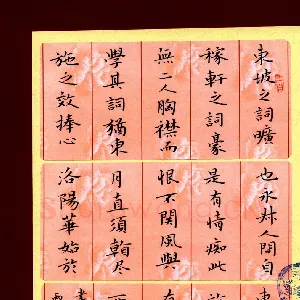 東坡之詞曠
稼軒之詞豪
無二人胸襟而
學其詞猶東
施之效捧心
也永叔人間自
是有情痴此
恨不關風與
月直須看尽
洛陽華始於